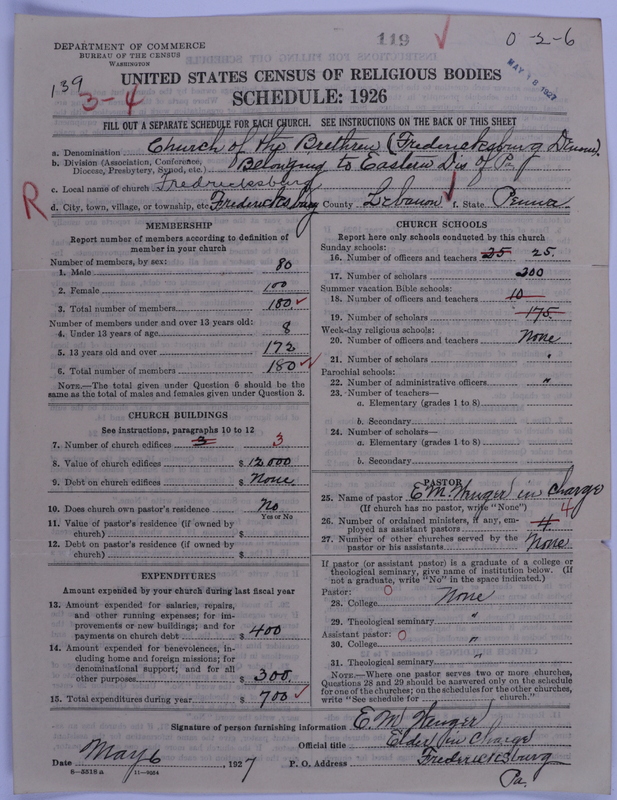 119
0-2-6
DEPARTMENT OF COMMERCE
BUREAU OF THE CENSUS
WASHINGTON
MAY 18 1927
139
3-4
UNITED STATES CENSUS OF RELIGIOUS BODIES
SCHEDULE: 1926
FILL OUT A SEPARATE SCHEDULE FOR EACH CHURCH. SEE INSTRUCTIONS ON THE BACK OF THIS SHEET
a. Denomination Church of the Brethren (Fredericksburg
b. Division (Association, Conference, Diocese, Presbytery, Synod, etc.) Belonging to Eastern Dis of Pa
c. Local name of church Fredricksburg
R
d. City, town, village, or township, etc. Fredericksburg County Lebanon f. State Penna
MEMBERSHIP
Report number of members according to definition of
member in your church
Number of members, by sex:
1. Male 80
2. Female 100
3. Total number of members 180
Number of members under and over 13 years old:
4. Under 13 years of age 8
5. 13 years old and over 172
6. Total number of members 180
NOTE.—The total given under Question 6 should be
same as the total of males and females given under Question 3.
CHURCH BUILDINGS
See instructions, paragraphs 10 to 12
7. Number of church edifices 3 3
8. Value of church edifices $ 12000
9. Debt on church edifices $ None
10. Does church own pastor's residence No
Yes or No
11. Value of pastor's residence (if owned by
church) $
12. Debt on pastor's residence (if owned by
church) $
EXPENDITURES
Amount expended by your church during last fiscal year
13. Amount expended for salaries, repairs,
and other running expenses; for im-
provements or new buildings; and for
payments on church debt $ 400
14. Amount expended for benevolences, in-
cluding home and foreign missions; for
denominational support; and for all
other purposes $ 300
15. Total expenditures during year $ 700
CHURCH SCHOOLS
Report here only schools conducted by this church
Sunday schools:
16. Number of officers and teachers 25 25.
17. Number of scholars 200
Summer vacation Bible schools:
18. Number of officers and teachers 10
19. Number of scholars 175
Week-day religious schools:
20. Number of officers and teachers None
21. Number of scholars "
Parochial schools:
22. Number of administrative officers "
23. Number of teachers—
a. Elementary (grades 1 to 8)
b. Secondary
24. Number of scholars—
a. Elementary (grades 1 to 8)
b. Secondary
PASTOR
25. Name of pastor E M. Wenger in Charge
(If church has no pastor, write "None")
26. Number of ordained ministers, if any, em-
ployed as assistant pastors 4 4
27. Number of other churches served by the
pastor or his assistants None
If pastor (or assistant pastor) is a graduate of a college or
theological seminary, give name of institution below. (If
not a graduate, write "No" in the space indicated.)
Pastor: 0
28. College None
29. Theological seminary "
Assistant pastor: 0
30. College "
31. Theological seminary "
NOTE.—Where one pastor serves two or more churches,
Questions 28 and 29 should be answered only on the schedule
for one of the churches; on the schedules for the other churches,
write "See schedule for church."
Signature of person furnishing information E. M. Wenger
Official title Elder in Charge
Date May 6, 1927 P. O. Address Fredericksburg
Pa.
8—5518 a 11—9054